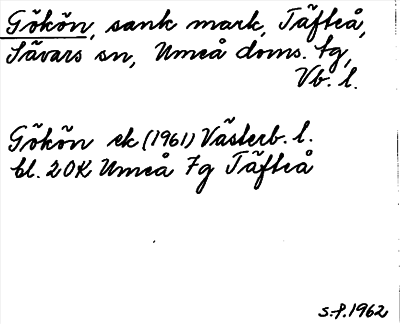 Gökön, sank mark, Täfteå,
Sävars sn, Umeå doms. tg,
Vb. l.
Gökön ek (1961) Västerb. l.
bl. 20K Umeå 7g Täfteå
s-f. 1962